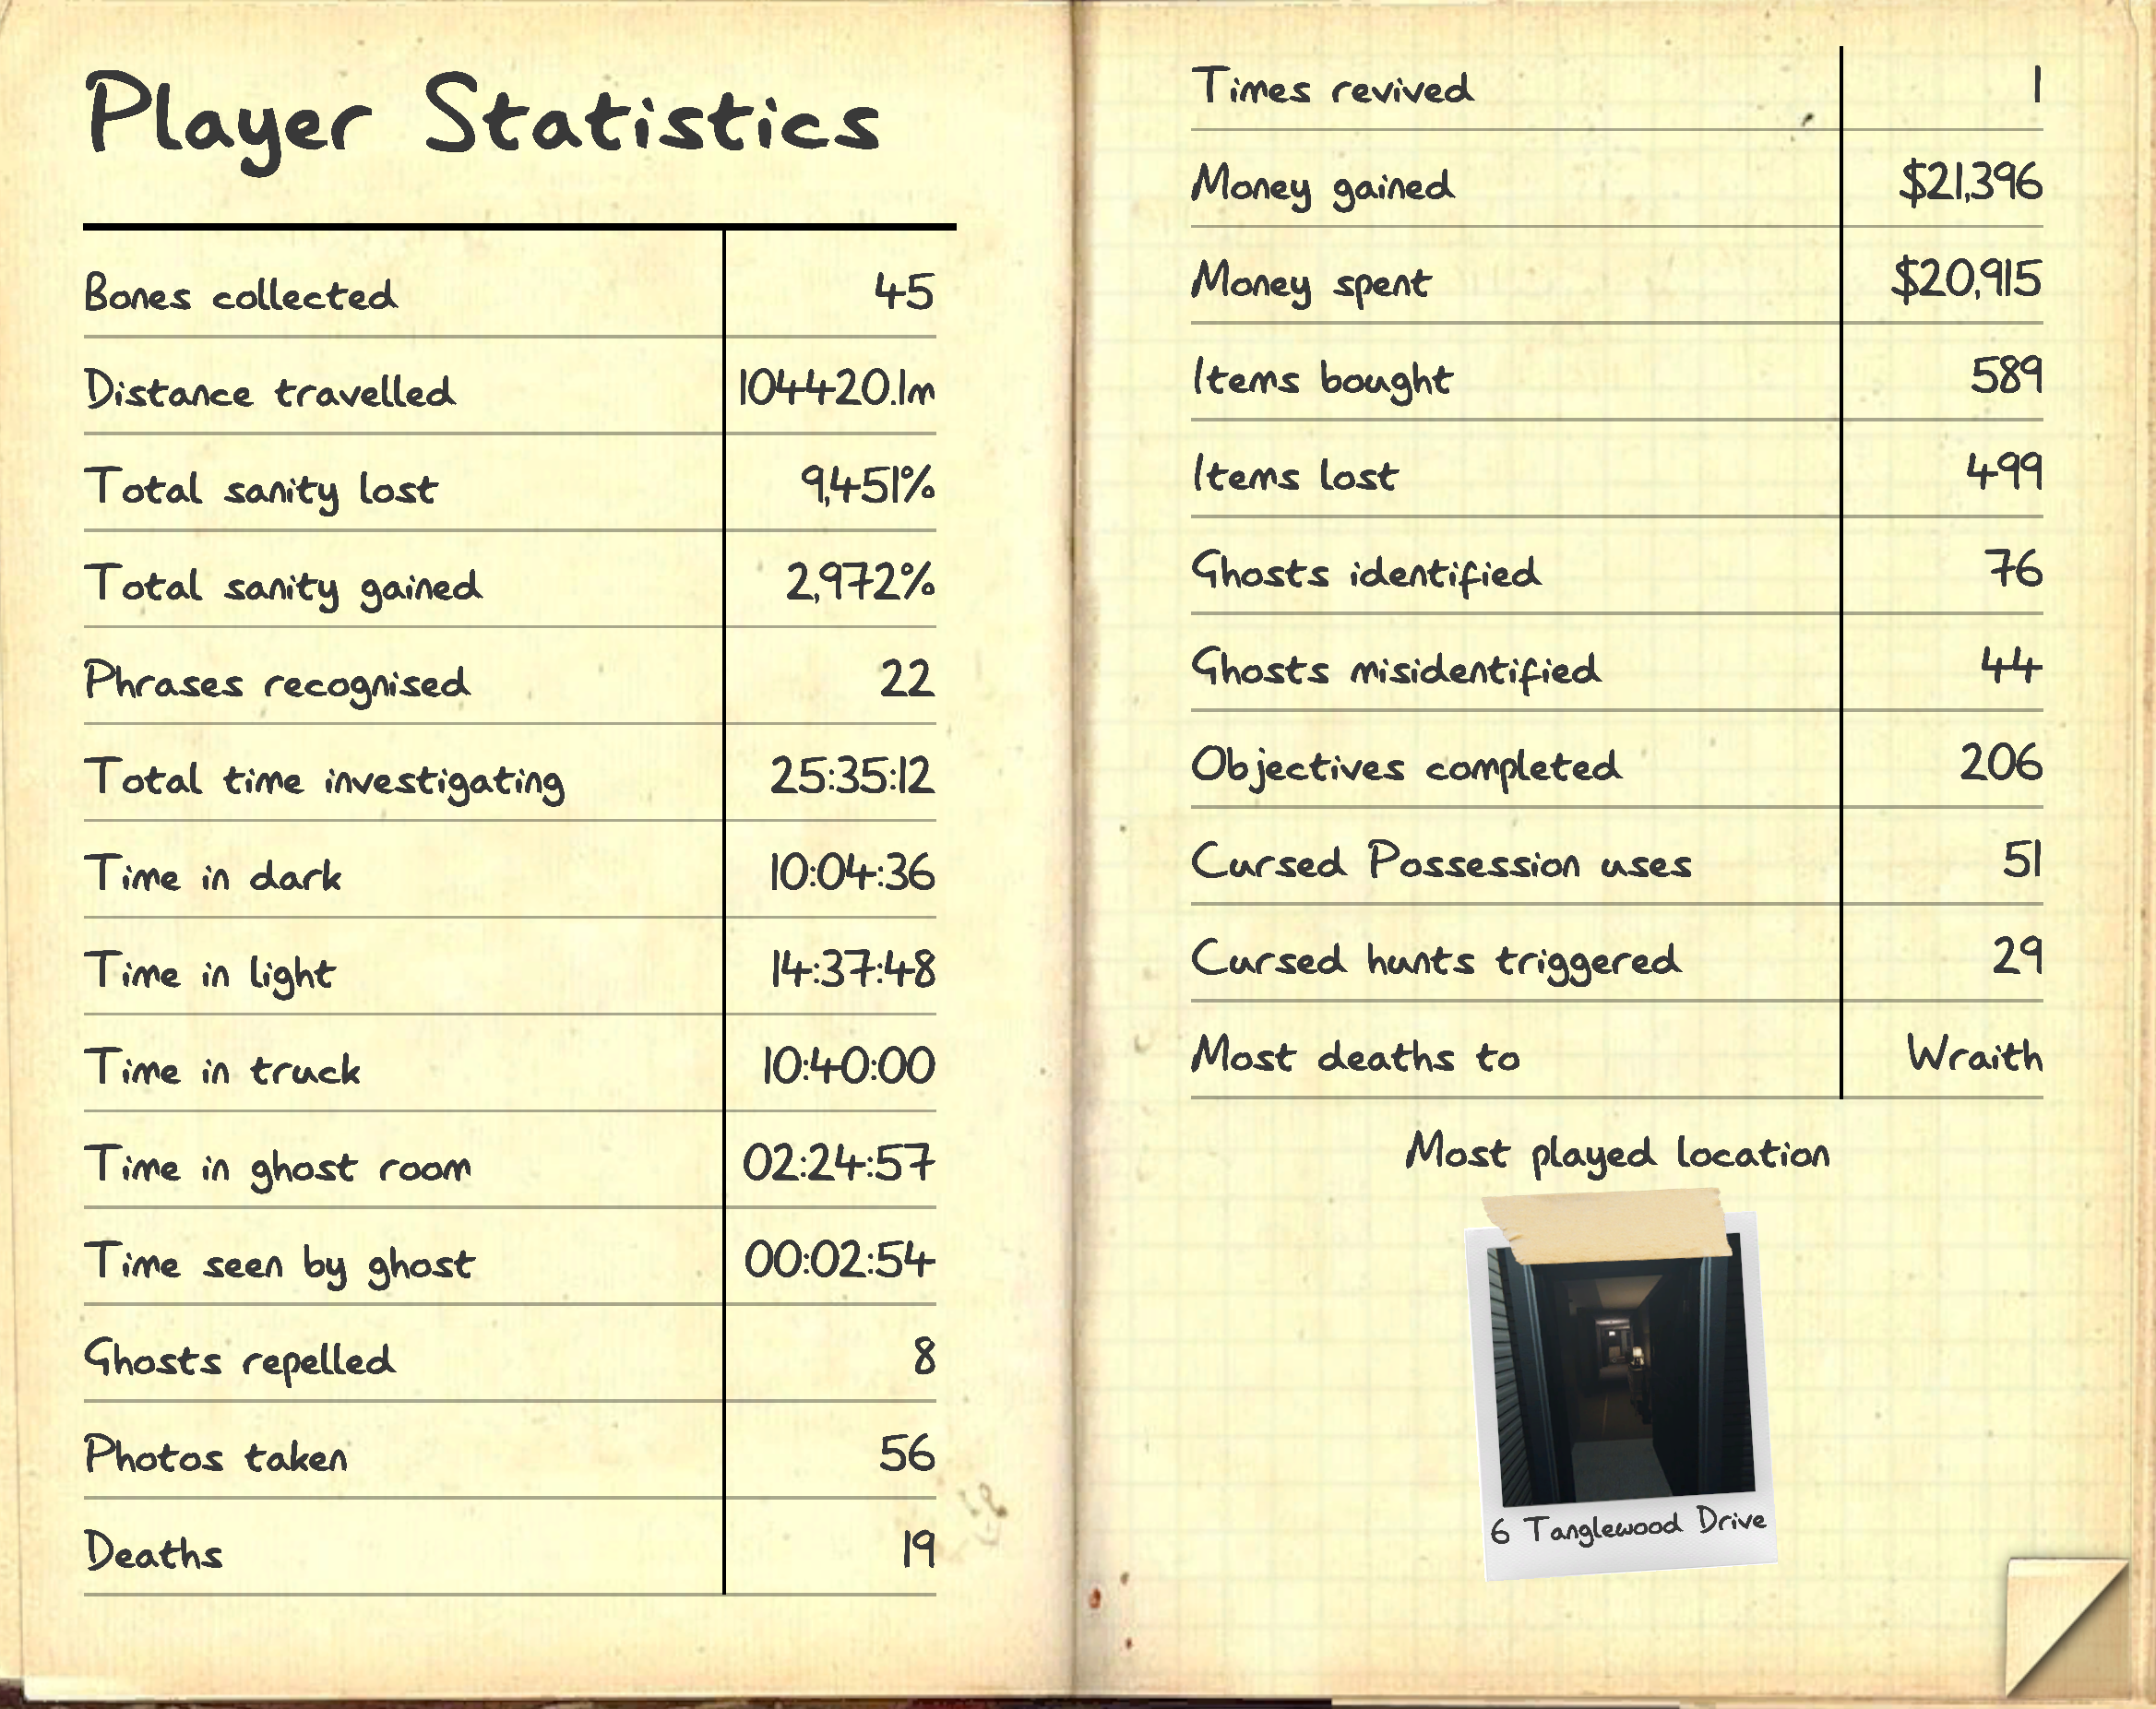 Player Statistics
Bones collected 45
Distance travelled 104420.1m
Total sanity lost 9,451%
Total sanity gained 2,972%
Phrases recognised 22
Total time investigating 25:35:12
Time in dark 10:04:36
Time in light 14:37:48
Time in truck 10:40:00
Time in ghost room 02:24:57
Time seen by ghost 00:02:54
Ghosts repelled 8
Photos taken 56
Deaths 19
Times revived 1
Money gained $21,396
Money spent $20,915
Items bought 589
Items lost 499
Ghosts identified 76
Ghosts misidentified 44
Objectives completed 206
Cursed Possession uses 51
Cursed hunts triggered 29
Most deaths to Wraith
Most played location
6 Tanglewood Drive